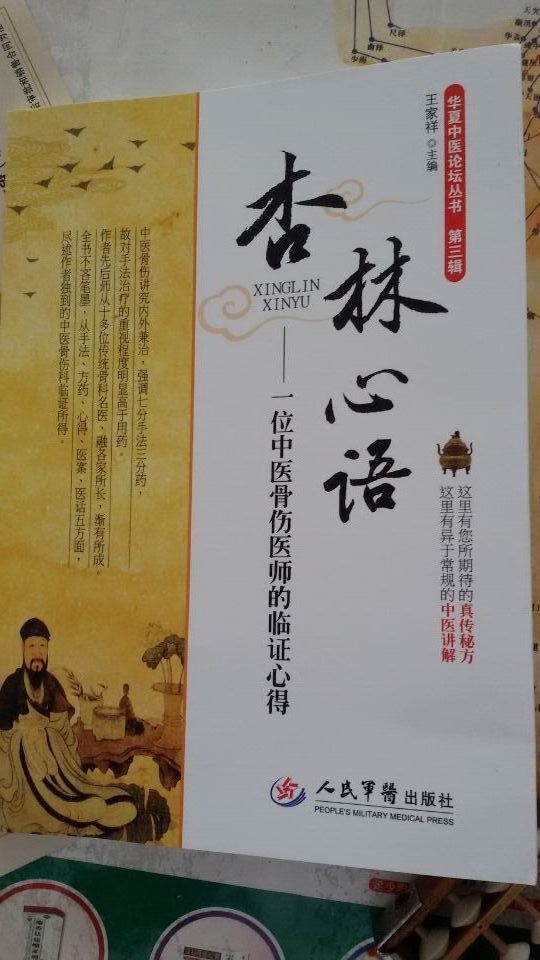 华夏中医论坛丛书 第三辑
王家祥◎主编
杏林心语
XINGLIN
XINYU
——一位中医骨伤医师的临证心得
这里有您所期待的真传秘方
这里有异于常规的中医讲解
中医骨伤讲究内外兼治，强调七分手法三分药，
故对手法治疗的重视程度明显高于用药。
作者先后师从十多位传统骨科名医，融各家所长，渐有所成。
全书不吝笔墨，从手法、方药、心得、医案、医话五方面，
尽述作者独到的中医骨伤科临证所得。
人民军医出版社
PEOPLE'S MILITARY MEDICAL PRESS
尺泽
曲泽
少海
天突
璇玑
华盖